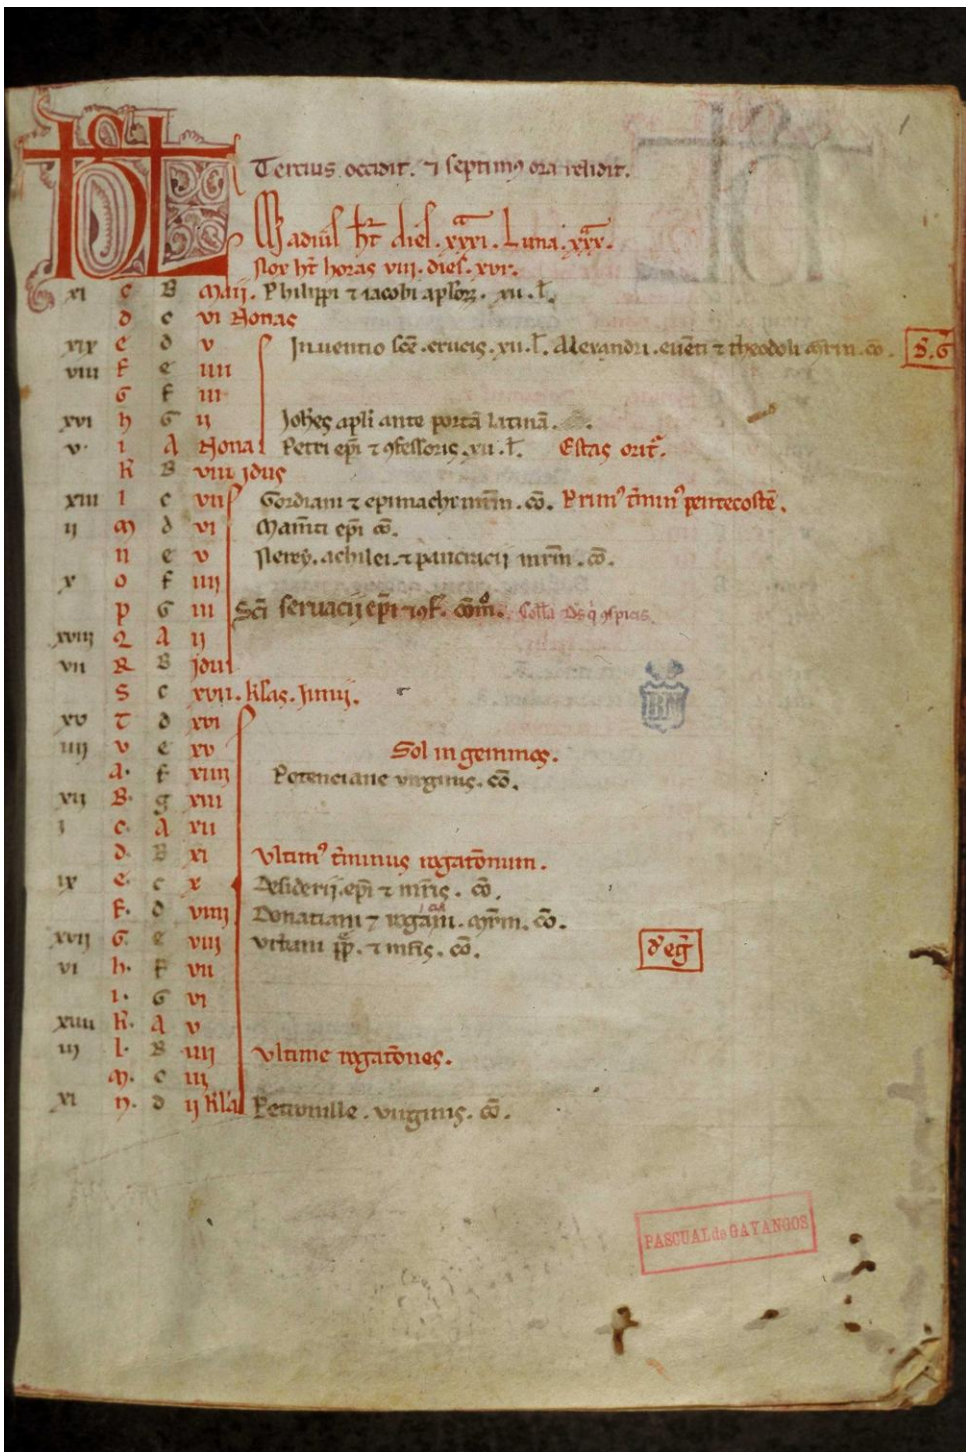 1
KL Tercius occidit. ⁊ septimꝰ ora relidit.
Madius hꝭ dies. xxxi. Luna. xxx.
Nox hꝭ horas viii. dies. xvi.
xi c B Maij. Philippi ⁊ iacobi apłoꝝ. xii. ł.
d c vi Nonas
xix e d v Inuentio scē. crucis. xii. ł. Alexandri. euēti ⁊ theodoli m̄rm. cō.
viii f e iiii
G f iii
xvi h G ij Joh̄es apłi ante portā latinā.
v i A Nonas Petri ep̄i ⁊ ꝯfessoris. xii. ł. Estas orit᷑.
k B viii idus
xiii l c vii Gordiani ⁊ epimachi mr̄m. cō. Primꝰ t̄minꝰ pentecostē.
ij m d vi Mam̄ti ep̄i cō.
n e v Nerei. achilei. ⁊ pancracij mr̄m. cō.
x o f iiij
p G iii Sc̄i seruacij ep̄i ⁊ ꝯf. cōmo.
xviij Q A ij
vii R B jdus
S c xvii. kłas. Junij.
xv T d xvi
iiij v e xv Sol in geminos.
a. f xiiij Potenciane virginis. cō.
xij B. g xiii
j c. A xii
d. B xi vltimꝰ t̄minus rogatōnum.
ix e. c x Desiderij. ep̄i ⁊ mr̄is. cō.
f. d viiij Donatiani ⁊ rogaciāni. mr̄m. cō.
xvij G. e viij vrbani pp̄. ⁊ mr̄is. cō.
vi h. f vii
i. G vi
xiiii k. A v
iij l. B iiij vltime rogatōnes.
m. c iij
xi n. d ij kła Petronille. virginis. cō.
BM
PASCUAL de GAYANGOS